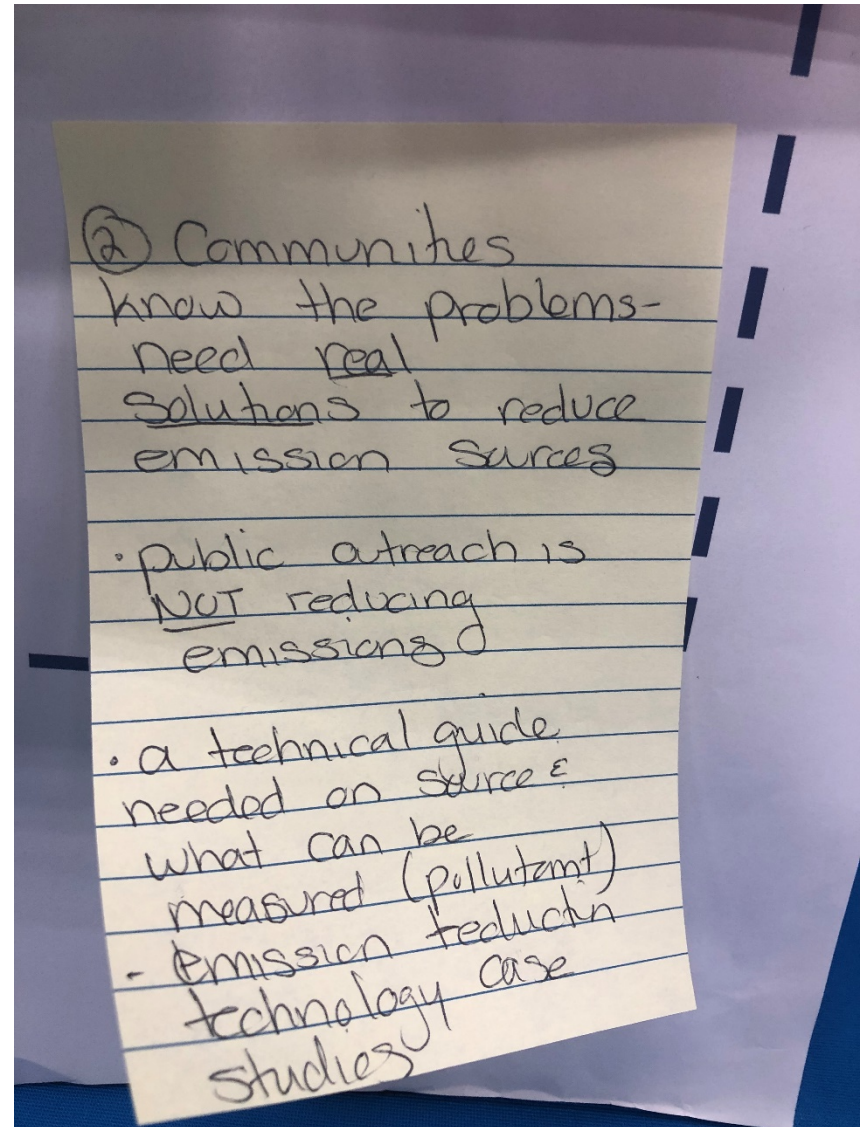 ② Communities
know the problems-
need real
solutions to reduce
emission sources
• public outreach is
NOT reducing
emissions
• a technical guide
needed on source &
what can be
measured (pollutant)
- emission reductin
technology case
studies